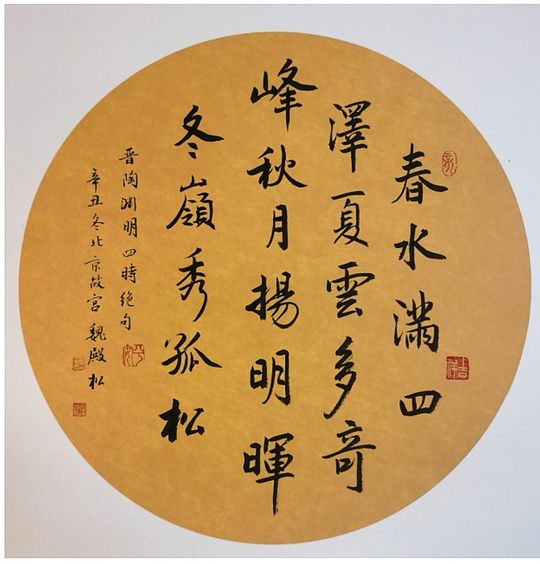 春水滿四
澤夏雲多奇
峰秋月揚明暉
冬嶺秀孤松
晋陶渊明四時绝句
辛丑冬北京故宫魏殿松